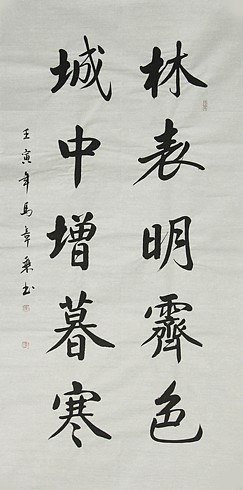 林表明霽色
城中增暮寒
壬寅年馬章乘书